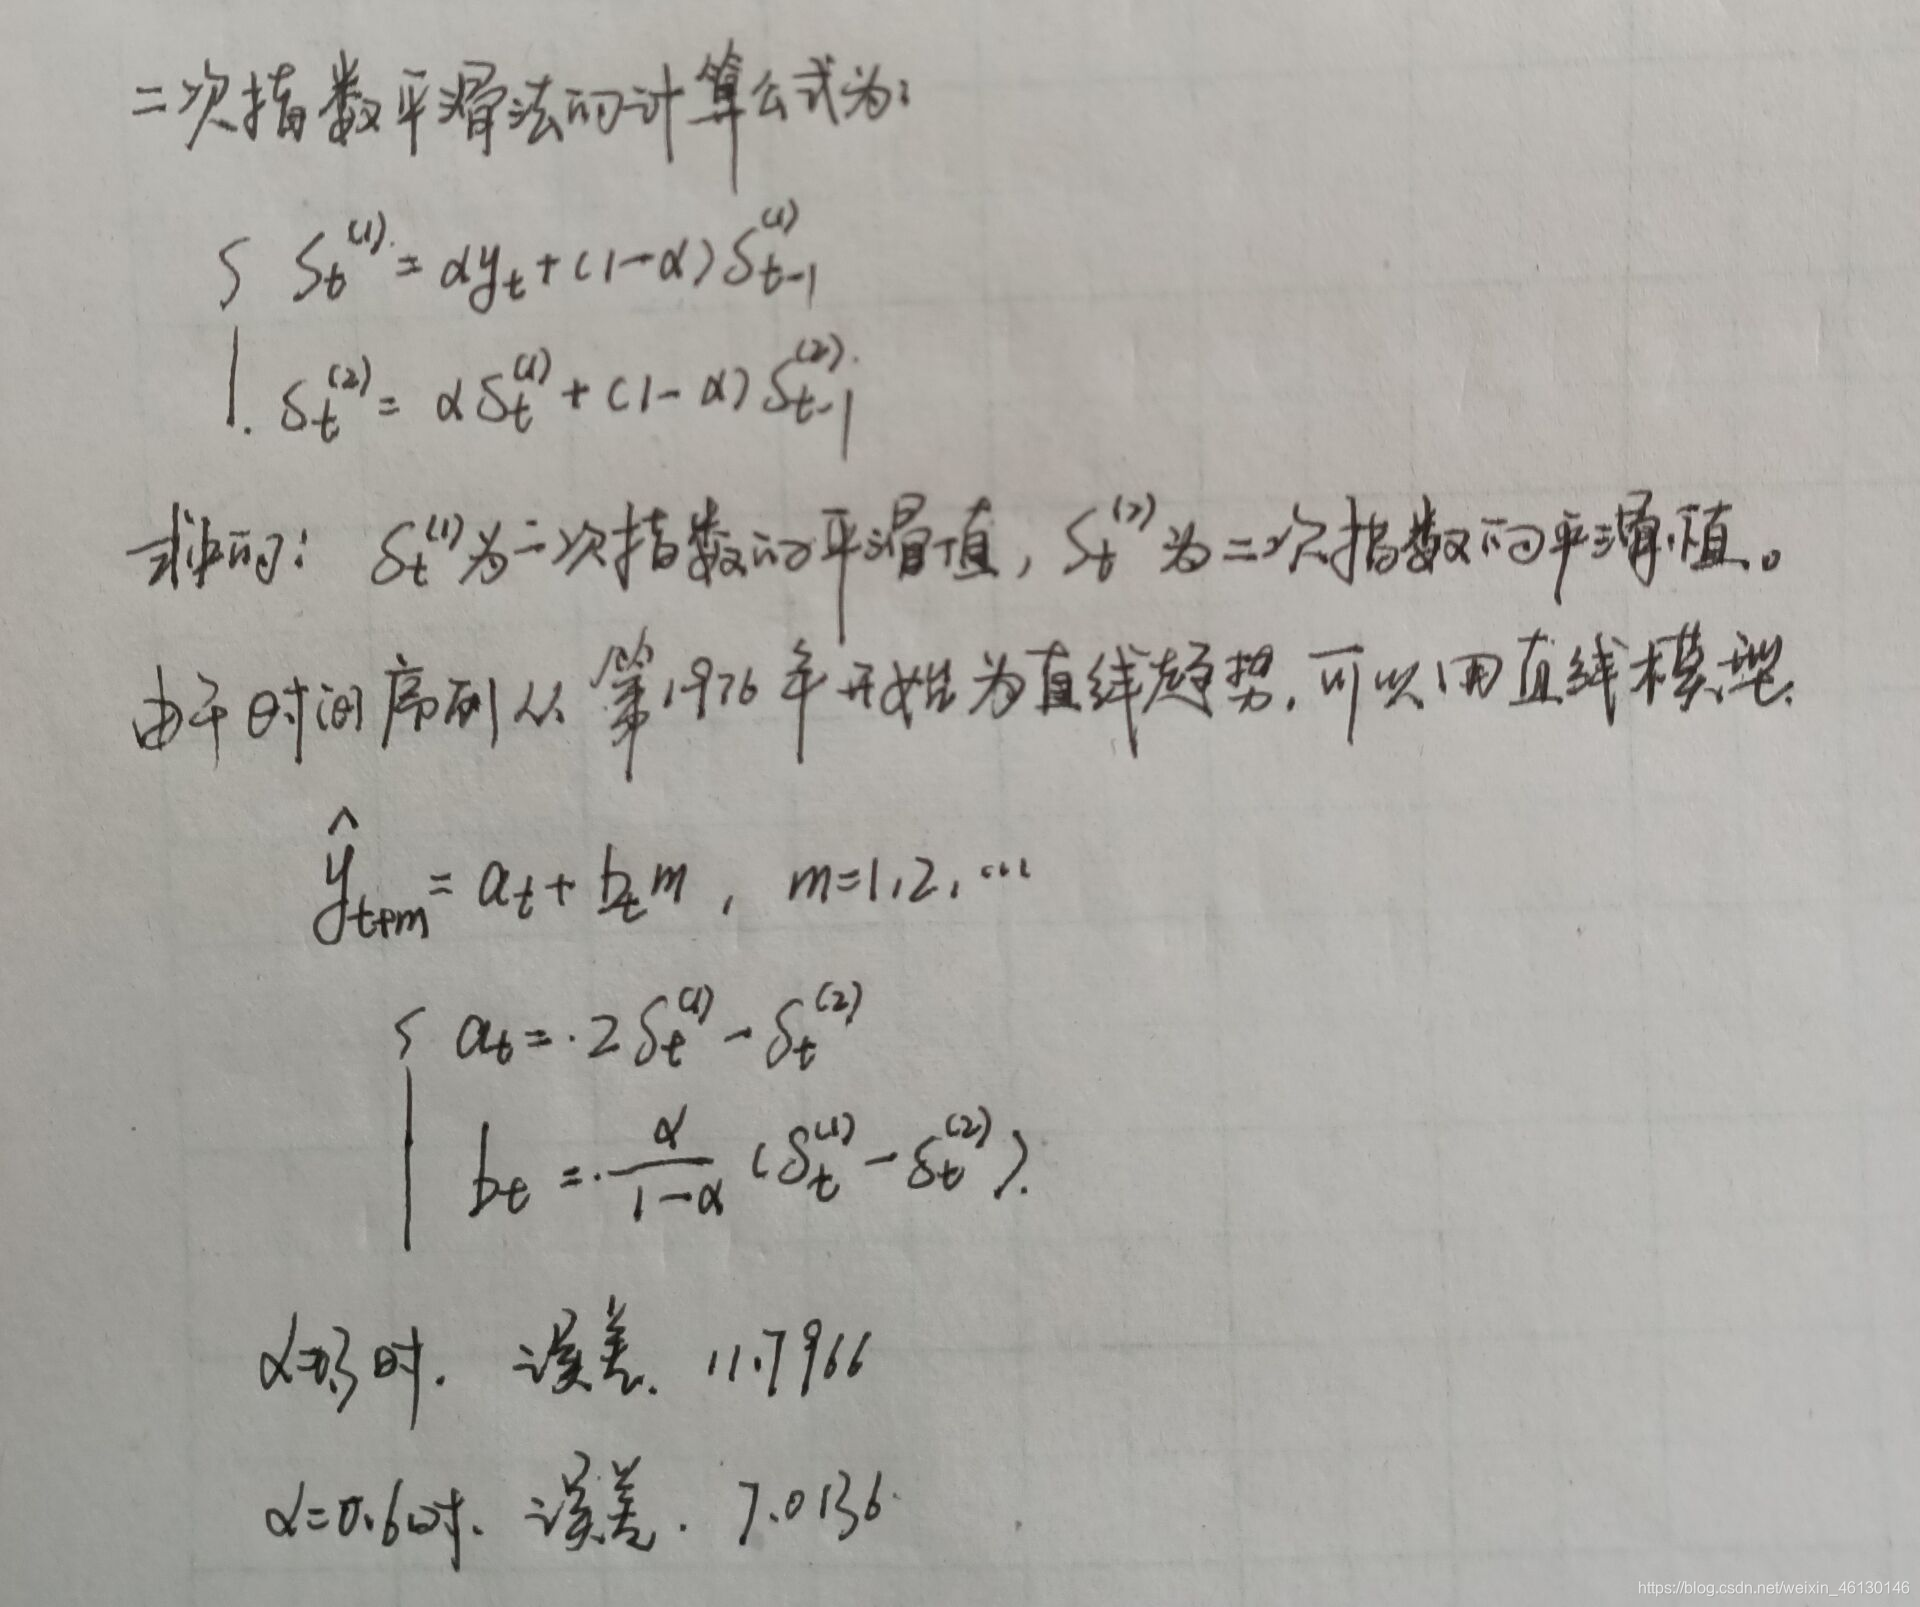 二次指数平滑法的计算公式为:
S_t^(1) = αy_t + (1-α)S_{t-1}^(1)
S_t^(2) = αS_t^(1) + (1-α)S_{t-1}^(2)
式中的: S_t^(1)为一次指数的平滑值, S_t^(2)为二次指数的平滑值。
由于时间序列从第1976年开始为直线趋势, 可以用直线模型.
ŷ_{t+m} = a_t + b_t m, m=1,2,…
a_t = 2S_t^(1) - S_t^(2)
b_t = α/(1-α) (S_t^(1) - S_t^(2)).
α=0.3时. 误差. 11.7966
α=0.6时. 误差. 7.0136
https://blog.csdn.net/weixin_46130146